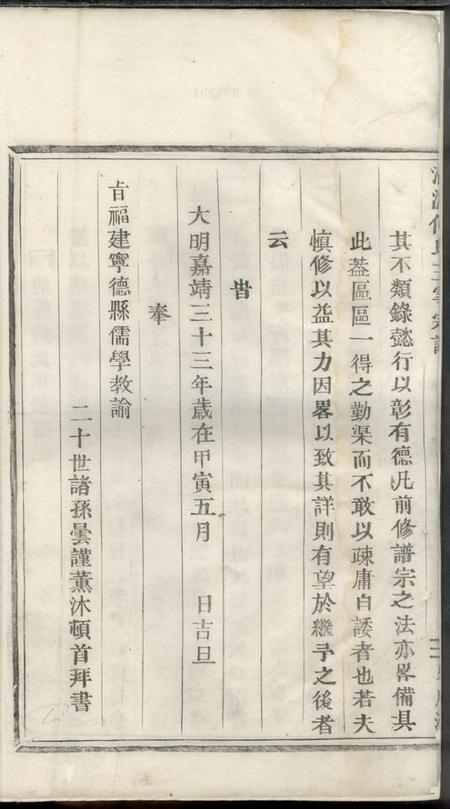 其不類錄懿行以彰有德凡前修譜宗之法亦畧備具
此葢區區一得之勤渠而不敢以疎庸自諉者也若夫
慎修以益其力因畧以致其詳則有望於繼予之後者
云
旹
大明嘉靖三十三年歲在甲寅五月　日吉旦
奉
旨福建寧德縣儒學教諭
二十世諸孫曇謹薰沐頓首拜書